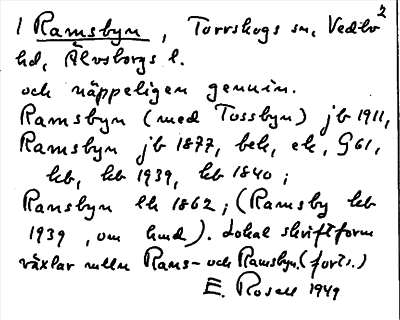 2
1 Ramsbyn, Torrskogs sn, Vedbo
hd, Älvsborgs l.
och näppeligen genuin.
Ramsbyn (med Tossbyn) jb 1911,
Ramsbyn jb 1877, bek, ek, G61,
kb, kb 1939, kb 1840;
Ransbyn lk 1862; (Ramsby kb
1939, om hmd). Lokal skriftform
växlar mlln Rams- och Ramsbyn. (forts.)
E. Rosell 1949